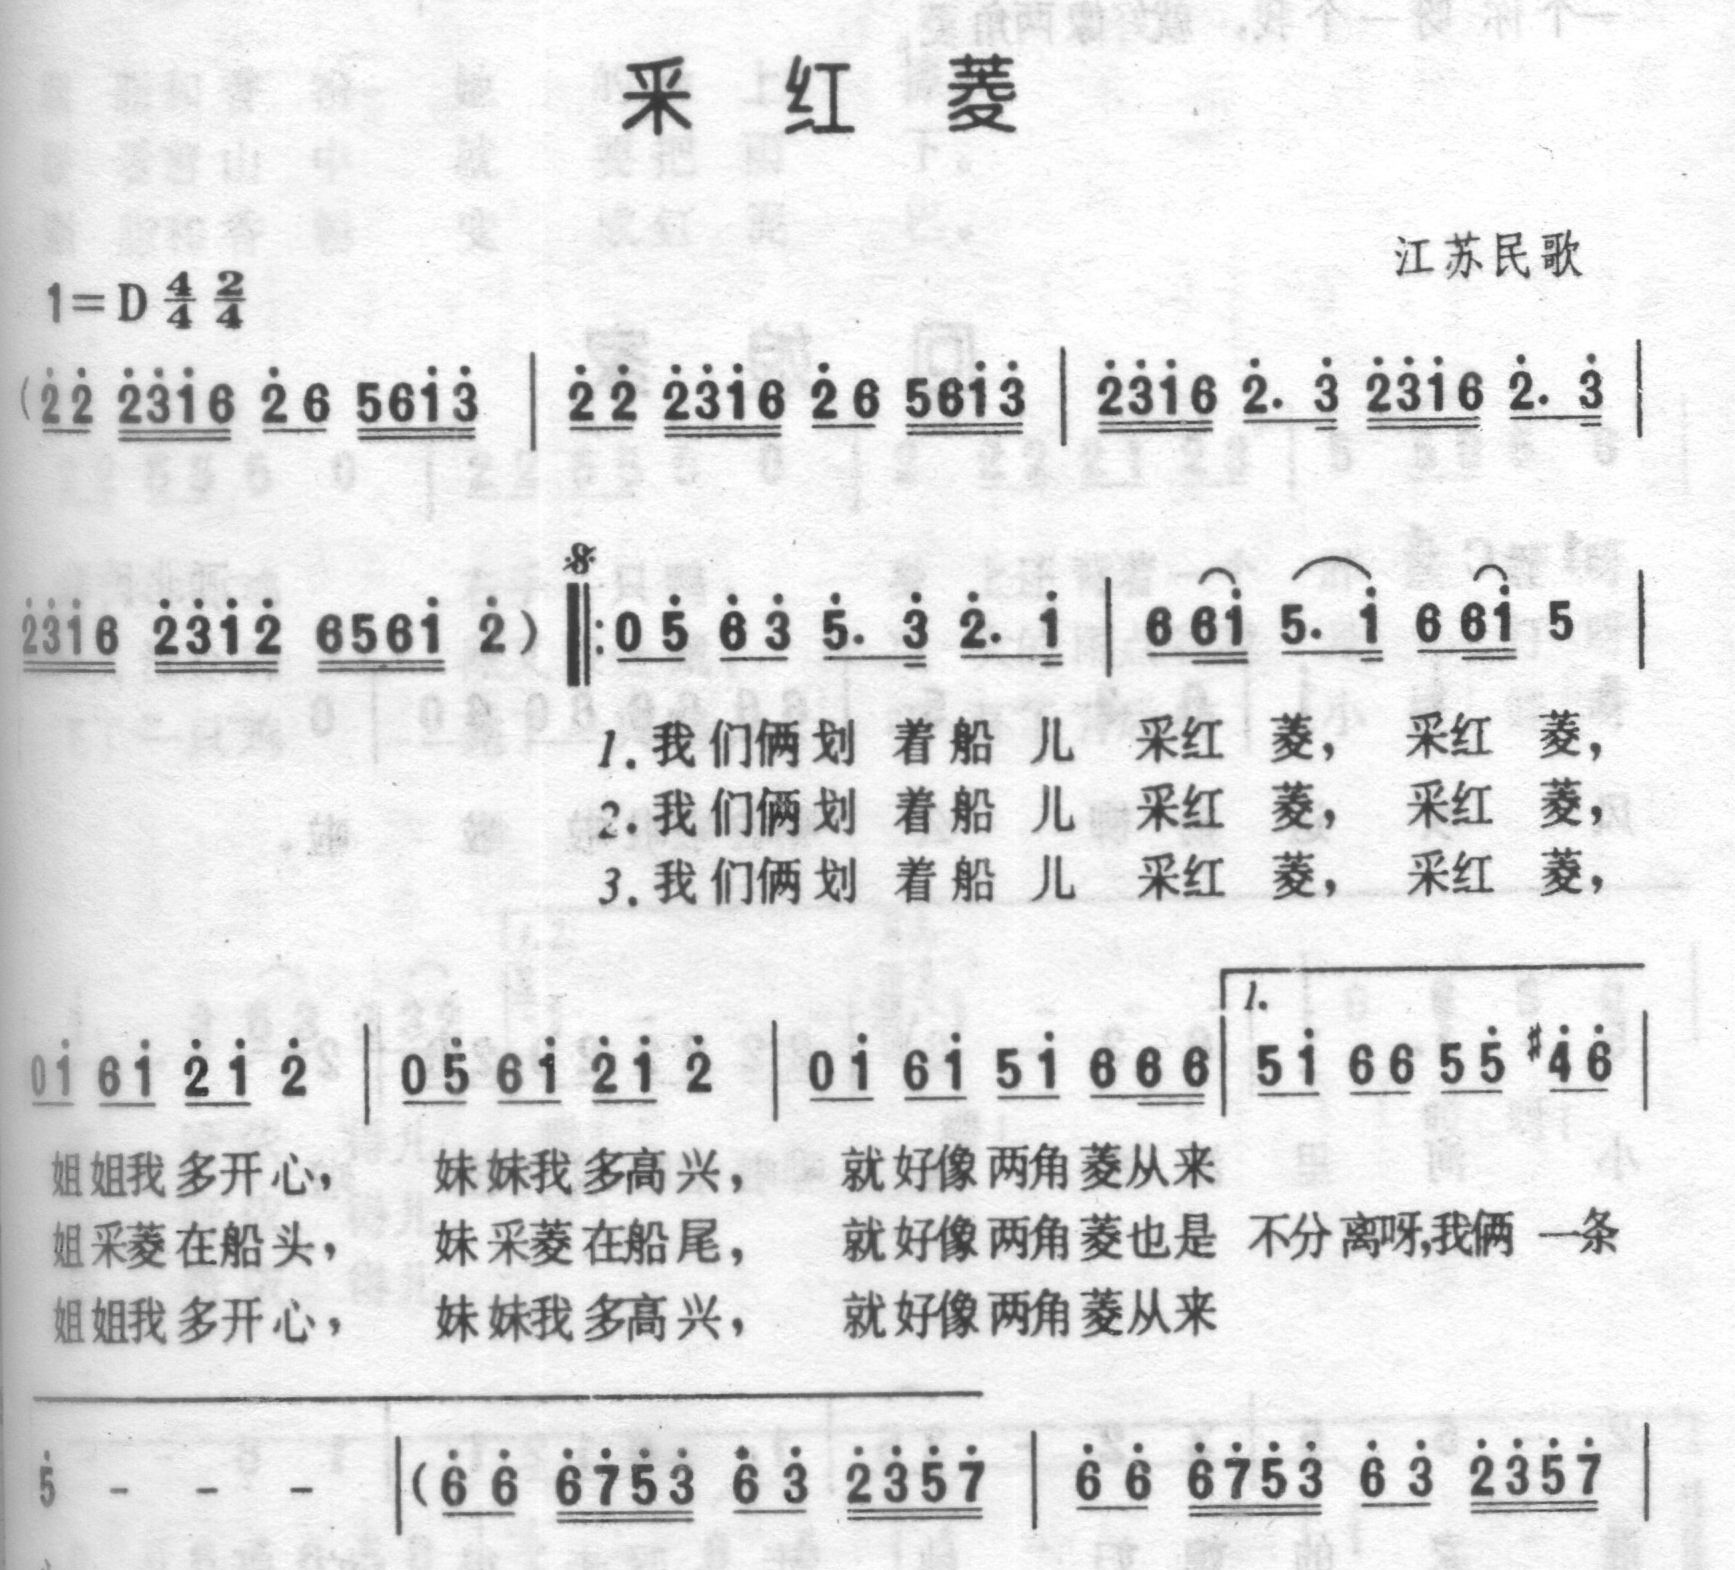 采红菱
江苏民歌
1=D 4/4 2/4
(2̇2̇ 2̇3̇1̇6 2̇6 561̇3̇ | 2̇2̇ 2̇3̇1̇6 2̇6 561̇3̇ | 2̇3̇1̇6 2̇. 3̇ 2̇3̇1̇6 2̇. 3̇ |
2̇3̇1̇6 2̇3̇1̇2̇ 6561̇ 2̇) 𝄋 ‖: 0 5̇ 6̇3̇ 5̇. 3̇ 2̇. 1̇ | 6 61̇ 5. 1̇ 6 61̇ 5 |
1.我们俩划 着船 儿 采红 菱, 采红 菱,
2.我们俩划 着船 儿 采红 菱, 采红 菱,
3.我们俩划 着船 儿 采红 菱, 采红 菱,
1.
01̇ 61̇ 2̇1̇ 2̇ | 05̇ 61̇ 2̇1̇ 2̇ | 01̇ 61̇ 51̇ 666 | 51̇ 66 55̇ #4̇6̇ |
姐姐我多开心, 妹妹我多高兴, 就好像两角菱从来
姐采菱在船头, 妹采菱在船尾, 就好像两角菱也是 不分离呀,我俩 一条
姐姐我多开心, 妹妹我多高兴, 就好像两角菱从来
5̇ - - - | (6̇6̇ 6̇7̇5̇3̇ 6̇3̇ 2̇3̇5̇7̇ | 6̇6̇ 6̇7̇5̇3̇ 6̇3̇ 2̇3̇5̇7̇ |